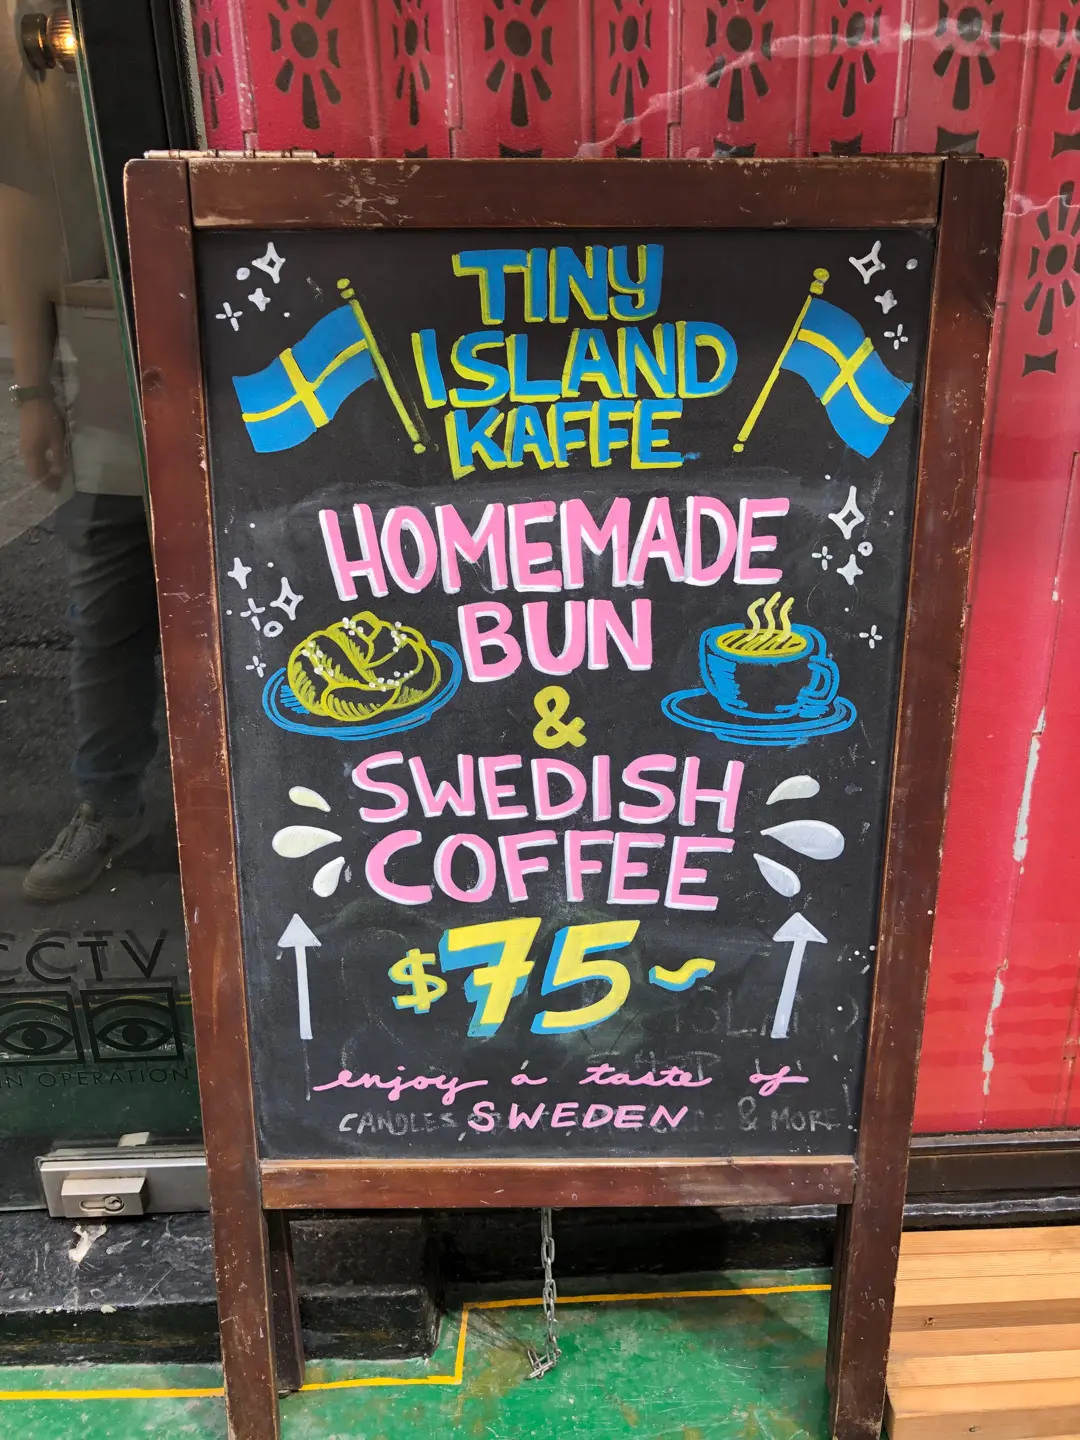 TINY
ISLAND
KAFFE
HOMEMADE
BUN
&
SWEDISH
COFFEE
$75~
enjoy a taste of
SWEDEN
CANDLES, & MORE!
CCTV
IN OPERATION